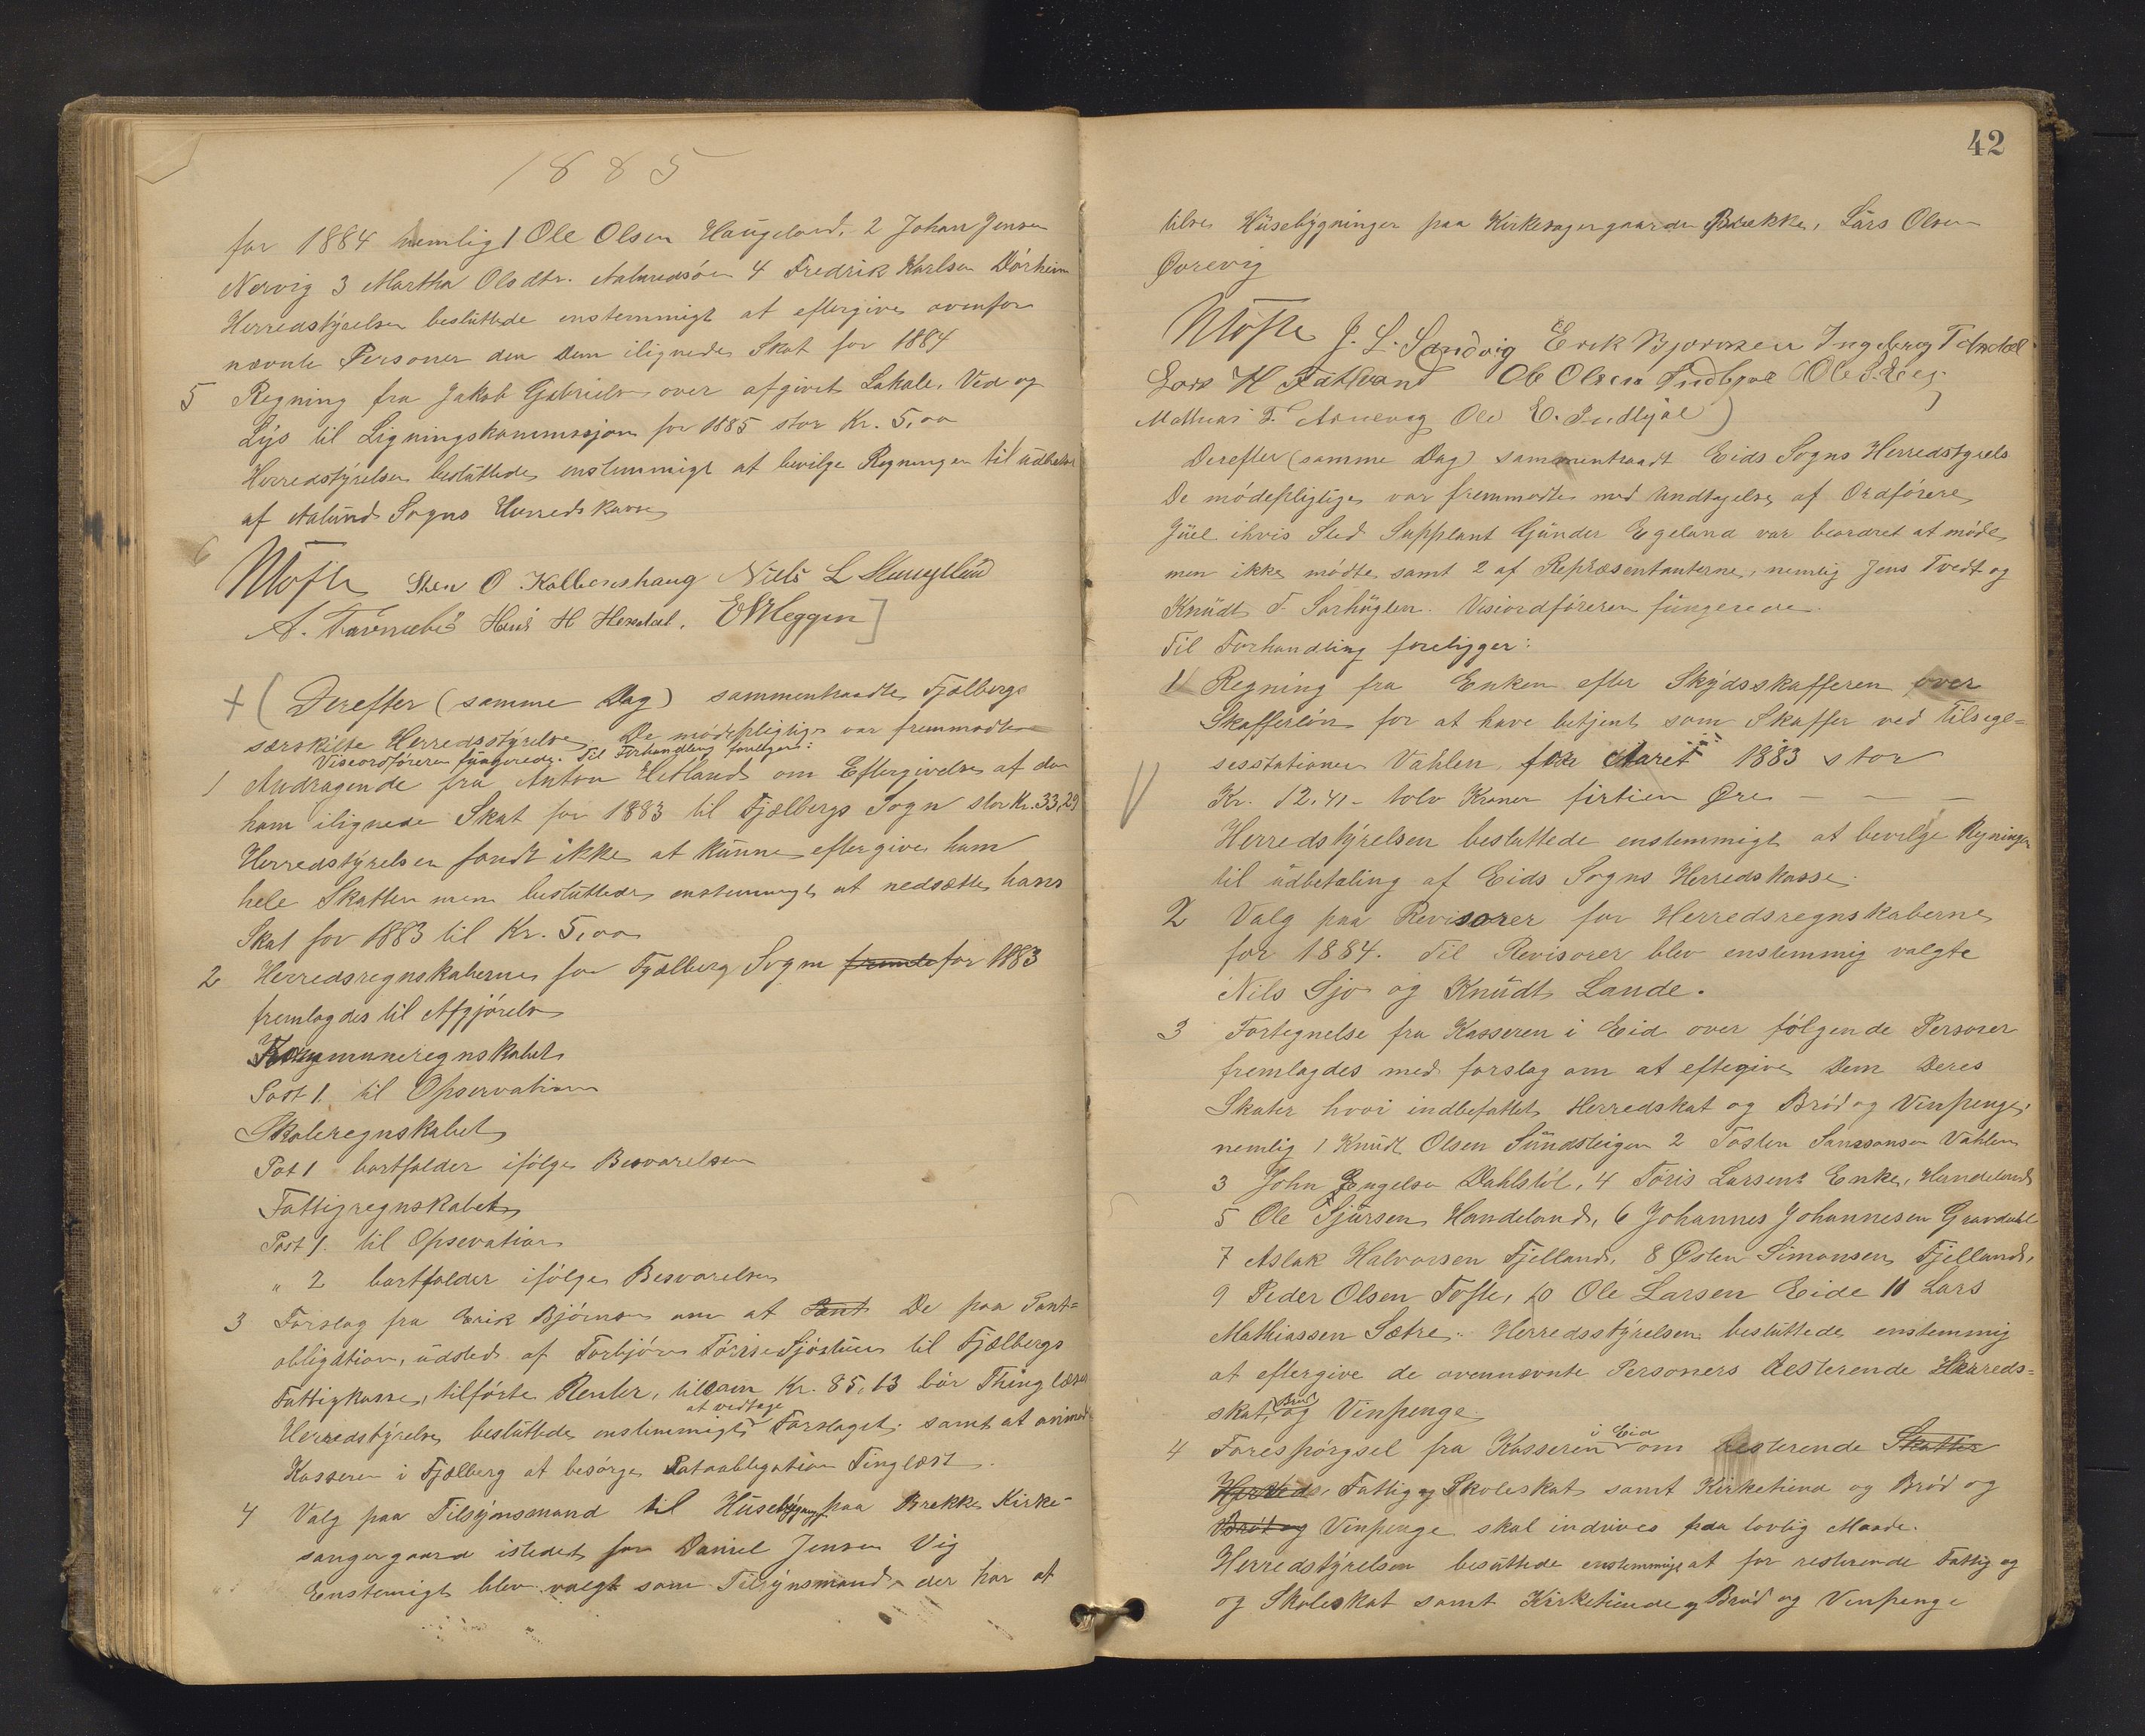 1885
for 1884 nemlig 1 Ole Olsen Haugeland, 2 Johan Jensen
Nervig 3 Martha Olsdtr. 4 Fredrik Karlsen Dörheim
Herredstÿrelsen beslüttede enstemmigt at eftergive ovenfor
nævnte Personer den Dem ilignede Skat for 1884
5 Regning fra Jakob Gabrielsen over afgivet Lokale, Ved og
Lÿs til Ligningskommissjon for 1885 stor Kr. 5,00
Herredstÿrelsen beslüttede enstemmigt at bevilge Regningen til üdbetal
af Aalünd Sogns Herredskasse
Möfte Sten O Kolbenshaug Niels L
A. Hans H Herdal. Heggen
+ ( Derefter (samme Dag) sammentraadte Fjælbergs
særskilte Herredsstÿrelse. De mödepligtige var fremmødte
Viseordföreren füngerede. Til Forhandling foreligger:
1 Andragende fra Anton Hetland om Eftergivelse af den
ham ilignede Skat for 1883 til Fjælbergs Sogn stor Kr. 33,29
Herredstÿrelsen fandt ikke at künne eftergive ham
hele Skatten men beslüttede enstemmigt at nedsætte hans
Skat for 1883 til Kr. 5,00
2 Herredsregnskaberne for Fjælberg Sogn fremle for 1883
fremlagdes til Afgjörelse
Kommuneregnskabet
Post 1. til Opservation
Skoleregnskabet
Pot 1 bortfalder ifölge Besvarelsen
Fattigregnskabet
Post 1. til Opsevation
" 2 bortfalder ifölge Besvarelsen
3 Forslag fra Erik Björnsen om at Pant De paa Pant=
obligation, üdsted af Torbjörn Törrisen Sjöstuen til Fjælbergs
Fattigkasse, tilförte Renter, tilsam Kr. 85,13 bör Thinglæses
at vedtage
Herredstÿrelse beslüttede enstemmigt Forslaget; samt at anmod
Kasseren i Fjælberg at besörge Pataobligation Tinglæst.
4 Valg paa Tilsÿnsmand til Hüsebÿgning paa Brekke Kirke-
sangergaard istedet for Daniel Jensen Vig
Enstemigt blev valgt som Tilsÿnsmand, der har at
42
tilse Hüsebÿgninger paa Kirkesangergaarden Brække, Lars Olsen
Øvrevig
Möfte J. L. Sandvig Erik Bjørnsen Ingebreg T
Lars H Ole Olsen Indbjoe Ole
Mathias T. Ole E. Indbjoe )
Derefter (samme Dag) sammentraadt Eids Sogns Herredstyrels
De mödepligtige var fremmødte med Undtagelse af Ordförere
Jüel ihvis Sted Supplant Günder Egeland var beordret at möde
men ikke mödte samt 2 af Repræsentanterne, nemlig Jens Tvedt og
Knüdt T. Sørhüglen. Viseordföreren füngerede.
Til Forhandling foreligger:
1 Regning fra Enken efter Skÿdsskafferen over
Skafferlön for at have betjent som Skaffer ved Tilsige=
sesstationen Vahlen for Aaret 1883 stor
Kr. 12.41 - tolv Kroner firtien Øre - - -
Herredstÿrelsen beslüttede enstemmigt at bevilge Regningen
til üdbetaling af Eids Sogns Herredskasse.
2 Valg paa Revisorer for Herredsregnskaberne
for 1884. Til Revisorer blev enstemmig valgte
Nils Sjo og Knüdt Lande.
3 Fortegnelse fra Kasseren i Eid over fölgende Personer
fremlagdes med forslag om at eftegive Dem Deres
Skater hvori indbefattet Herredskat og Bröd og Vinpenge,
nemlig 1 Knüdt Olsen Sündsteigen 2 Tosten Vahlen
3 John Engelsen Dahlstöl, 4 Töris Larsens Enke, Handeland
5 Ole Sjürsen Handeland, 6 Johannes Johannesen Gravdahl
7 Aslak Halvorsen Fjelland, 8 Østen Simonsen Fjelland,
9 Peder Olsen Tofte, 10 Ole Larsen Eide 11 Lars
Mathiassen Sætre. Herredsstÿrelsen beslüttede enstemmig
at eftergive de ovennævnte Personers Resterende Herreds=
skat, Bröd og Vinpenge.
4 Forespörgsel fra Kasseren i Eid om resterende Skatter
Herreds, Fattig og Skoleskat samt Kirketiend og Bröd og
Bröd og Vinpenge skal indrives paa lovlig Maade.
Herredstÿrelsen beslüttede enstemmigt at for resterende Fattig og
og Skoleskat samt Kirketiende og Bröd og Vinpenge